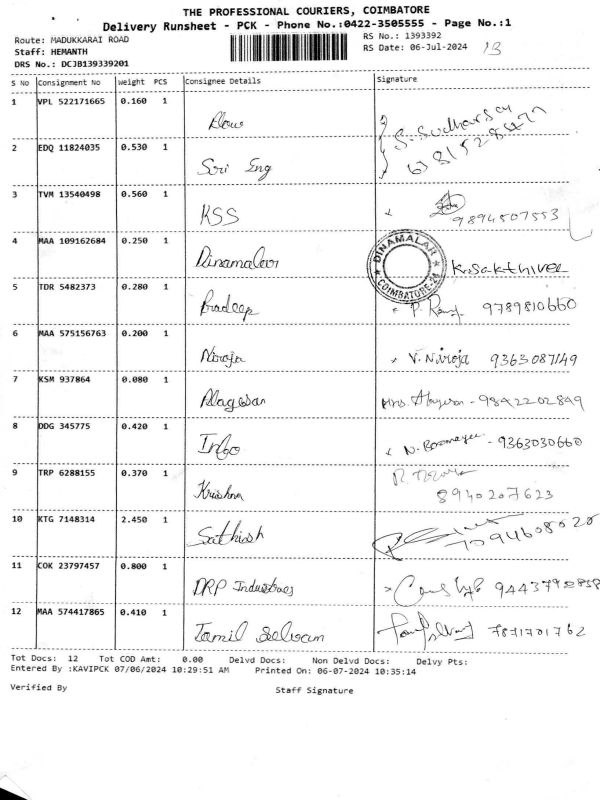 THE PROFESSIONAL COURIERS, COIMBATORE
Delivery Runsheet - PCK - Phone No.:0422-3505555 - Page No.:1
Route: MADUKKARAI ROAD
Staff: HEMANTH
DRS No.: DCJB139339201
RS No.: 1393392
RS Date: 06-Jul-2024
13
S No Consignment No Weight PCS Consignee Details Signature
1 VPL 522171665 0.160 1
2 EDQ 11824035 0.530 1 Sri Eng
S. Sudharsan
3 TVM 13540498 0.560 1 KSS 9894507553
4 MAA 109162684 0.250 1 Dinamalar DINAMALAR COIMBATORE-24 K. Sakthivel
5 TDR 5482373 0.280 1 Pradeep P. 9789810660
6 MAA 575156763 0.200 1 Niroja V. Niroja 9363087149
7 KSM 937864 0.080 1 Alagesan - 9842202899
8 DDG 345775 0.420 1 Info N. - 9363030660
9 TRP 6288155 0.370 1 Krishna 8940207623
10 KTG 7148314 2.450 1 Sathish 7094608020
11 COK 23797457 0.800 1 DRP Industries
12 MAA 574417865 0.410 1 Tamil Selvam 7871701762
Tot Docs: 12 Tot COD Amt: 0.00 Delvd Docs: Non Delvd Docs: Delvy Pts:
Entered By :KAVIPCK 07/06/2024 10:29:51 AM Printed On: 06-07-2024 10:35:14
Verified By Staff Signature